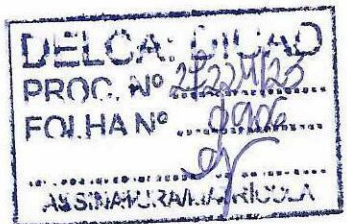 DELCA: DICAD
PROC. Nº 27224/23
FOLHA Nº 0906
ASSINATURA/MATRÍCULA